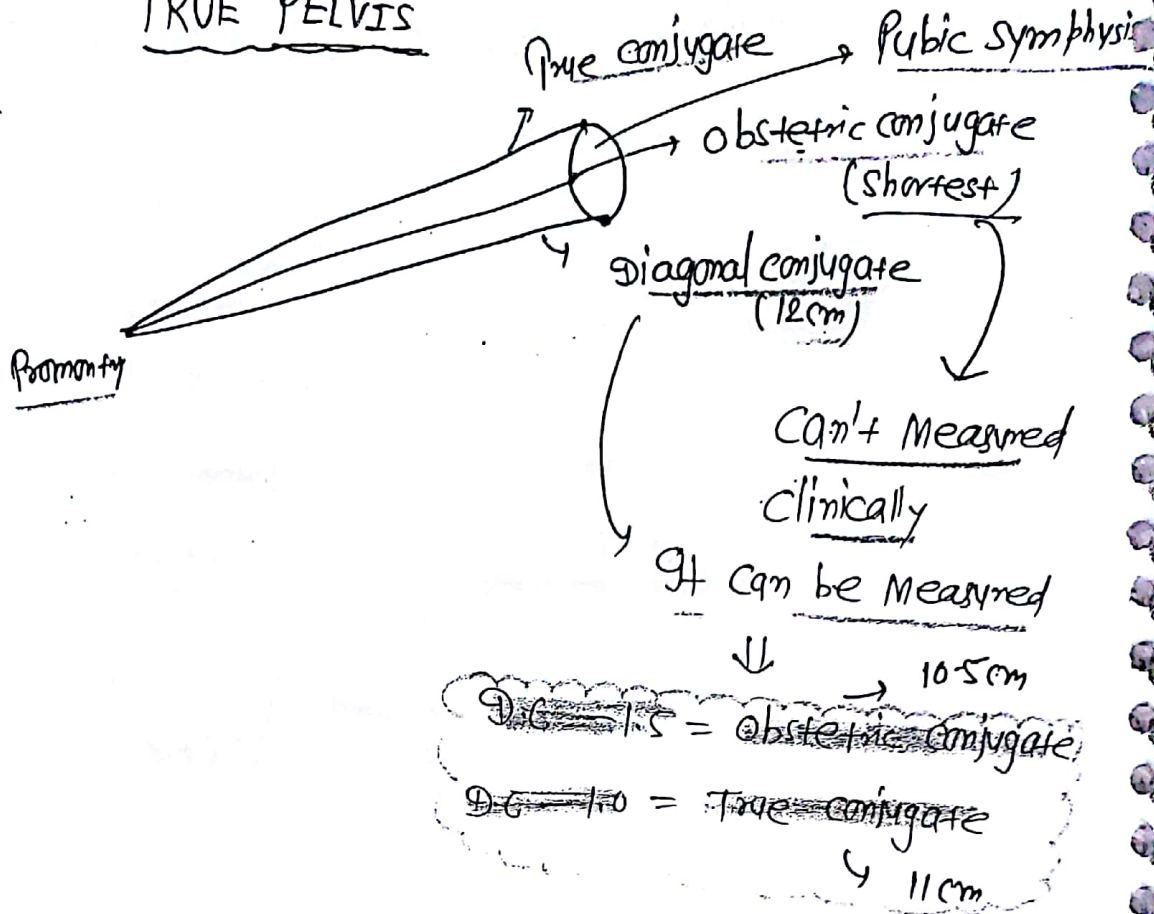 TRUE PELVIS
True conjugate
Pubic symphysis
Obstetric conjugate
(Shortest)
Diagonal conjugate
(12cm)
Promonty
Can't Measured
Clinically
It Can be Measured
⇓
→ 10.5cm
D.C — 1.5 = Obstetric Conjugate
D.C — 1.0 = True conjugate
11cm